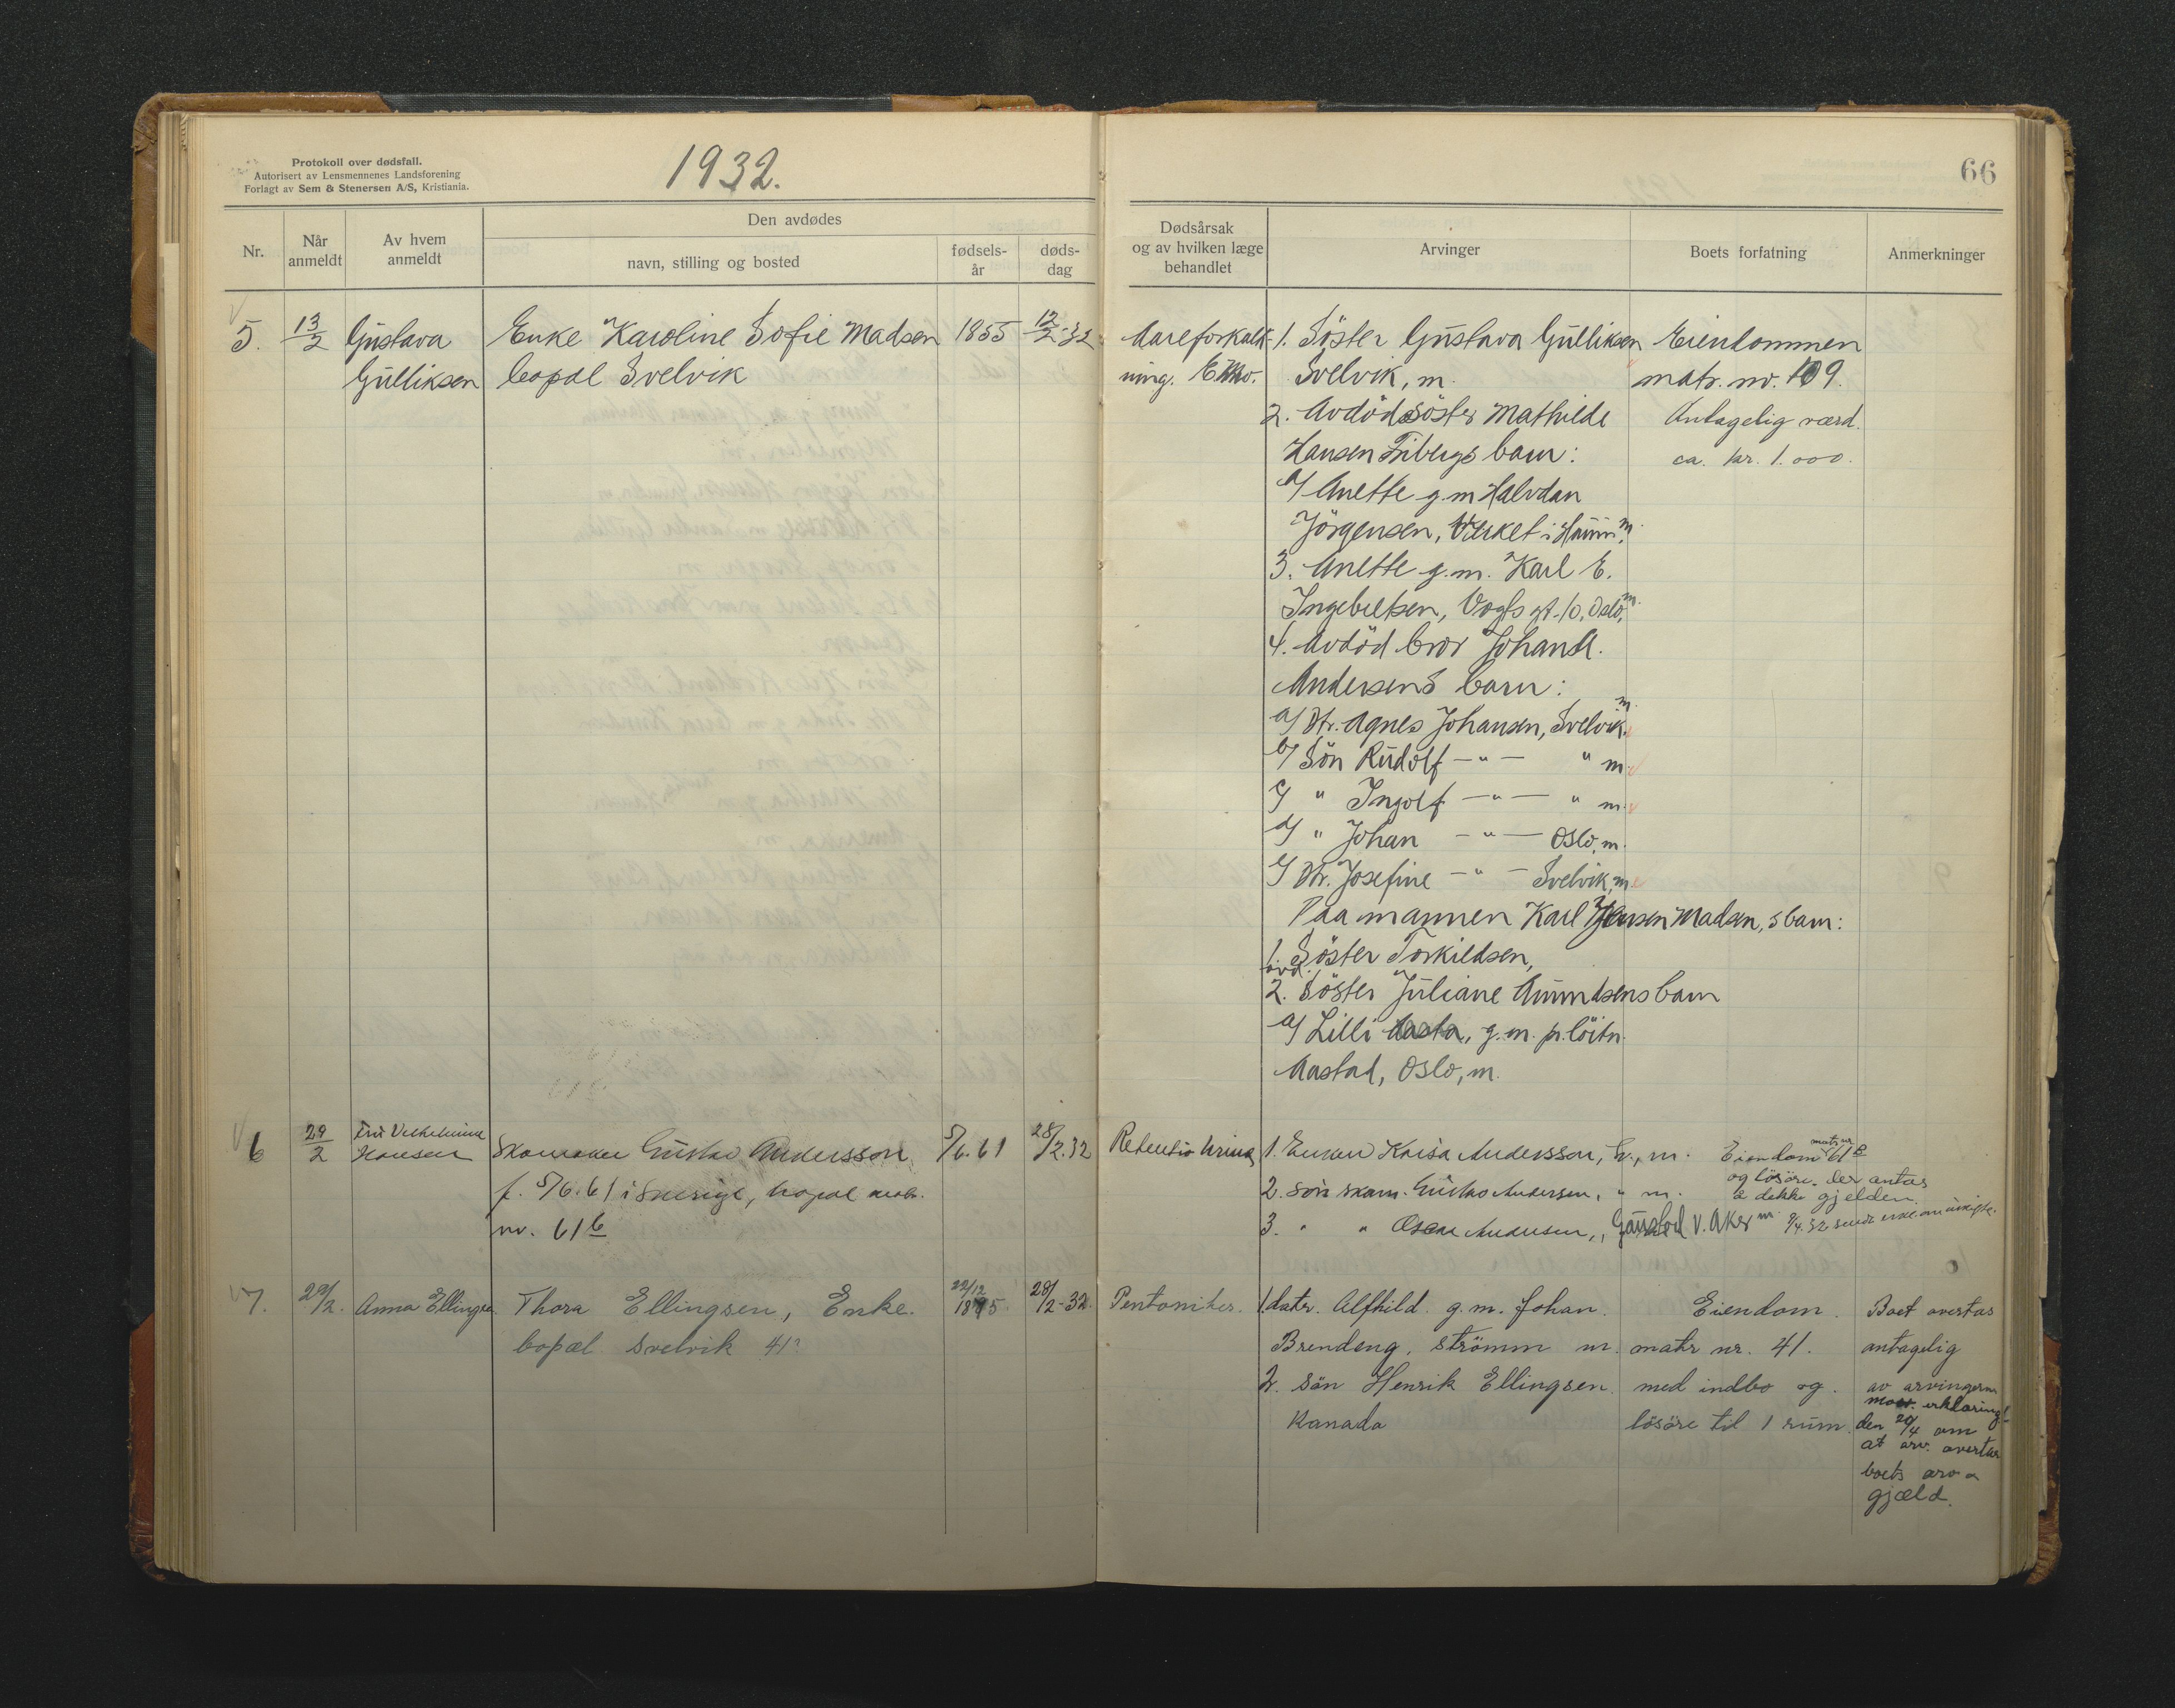 Protokoll over dødsfall.
Autorisert av Lensmennenes Landsforening
Forlagt av Sem & Stenersen A/S, Kristiania.
1932.
66
Nr.
Når anmeldt
Av hvem anmeldt
Den avdødes
navn, stilling og bosted
fødsels-år
døds-dag
Dødsårsak og av hvilken læge behandlet
Arvinger
Boets forfatning
Anmerkninger
5. 13/2 Gustava Enke Karoline Sofie Madsen 1855 12/2-32
Gulliksen bopæl Svelvik
Aareforkalk-
ning.
1. Söster Gustava Gulliksen
Svelvik, m.
2. Avdöd söster Mathilde
Hansen Fibergs barn:
a/ Anette g.m Halvdan
Jörgensen, Verket i Hurum m.
3. Anette g.m. Karl E.
Ingebretsen, Vogts gt. 10, Oslo, m.
4. Avdöd bror Johan A.
Andersens barn:
a/ Dtr. Agnes Johansen, Svelvik m.
b/ Sön Rudolf -"- " m.
c/ " Ingolf -"- " m.
d/ " Johan -"- Oslo, m.
e/ Dtr. Josefine -"- Svelvik, m
Paa mannen Karl Jensen Madsen,s barn:
1. Söster Torkildsen,
avd.
2. Söster Juliane Amundsens barn
a/ Lilli Aasta, g.m. pr.löitn.
Aastad, Oslo, m.
Eiendommen
matr. nr. 109.
Antagelig værd.
ca. kr. 1.000.
6 29/2 Fru Vilhelmine
Hansen
Skomaker Gustav Andersson 5/6.61 28/2.32
f. 5/6.61 i Sverige, bopæl matr.
nr. 61b
Retentio urina
1. Enken Kaisa Andersson, h., m.
2. Sön skom. Gustav Andersen, " m.
3. " " Oscar Andersen, Gaustad V. Aker m.
Eiendom matr nr 61b
og lösöre, der antas
å dekke gjelden.
7. 29/2. Anna Ellingsen Thora Ellingsen, Enke. 22/12 28/2-32.
bopæl Svelvik 41
1 datr. Alfhild g.m. Johan
Brendeng, Strömm m.
2. Sön Henrik Ellingsen
Kanada
Eiendom.
matr nr. 41.
med indbo og
lösöre til 1 rum.
Boet overtas
antagelig
av arvingerne
erklæring
den 20/4 om
at arv. overtar
boets arv o
gjæld.